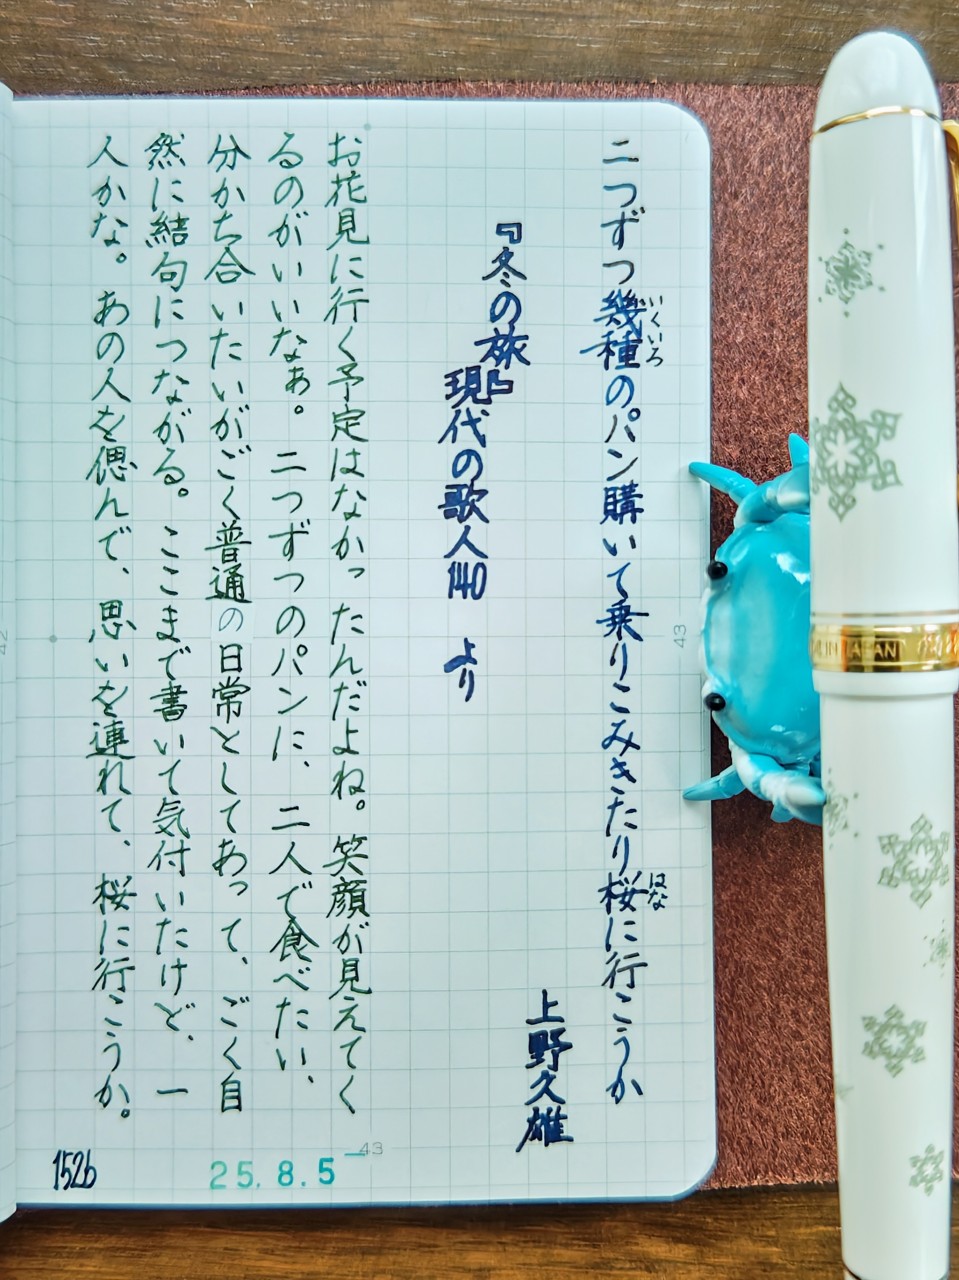 二つずつ幾種のパン購いて乗りこみきたり桜に行こうか
いくいろ
はな
上野久雄
『冬の旅』
現代の歌人140 より
お花見に行く予定はなかったんだよね。笑顔が見えてく
るのがいいなぁ。二つずつのパンに、二人で食べたい、
分かち合いたいがごく普通の日常としてあって、ごく自
然に結句につながる。ここまで書いて気付いたけど、一
人かな。あの人を偲んで、思いを連れて、桜に行こうか。
25.8.5
1526
43
43
42
JAPAN